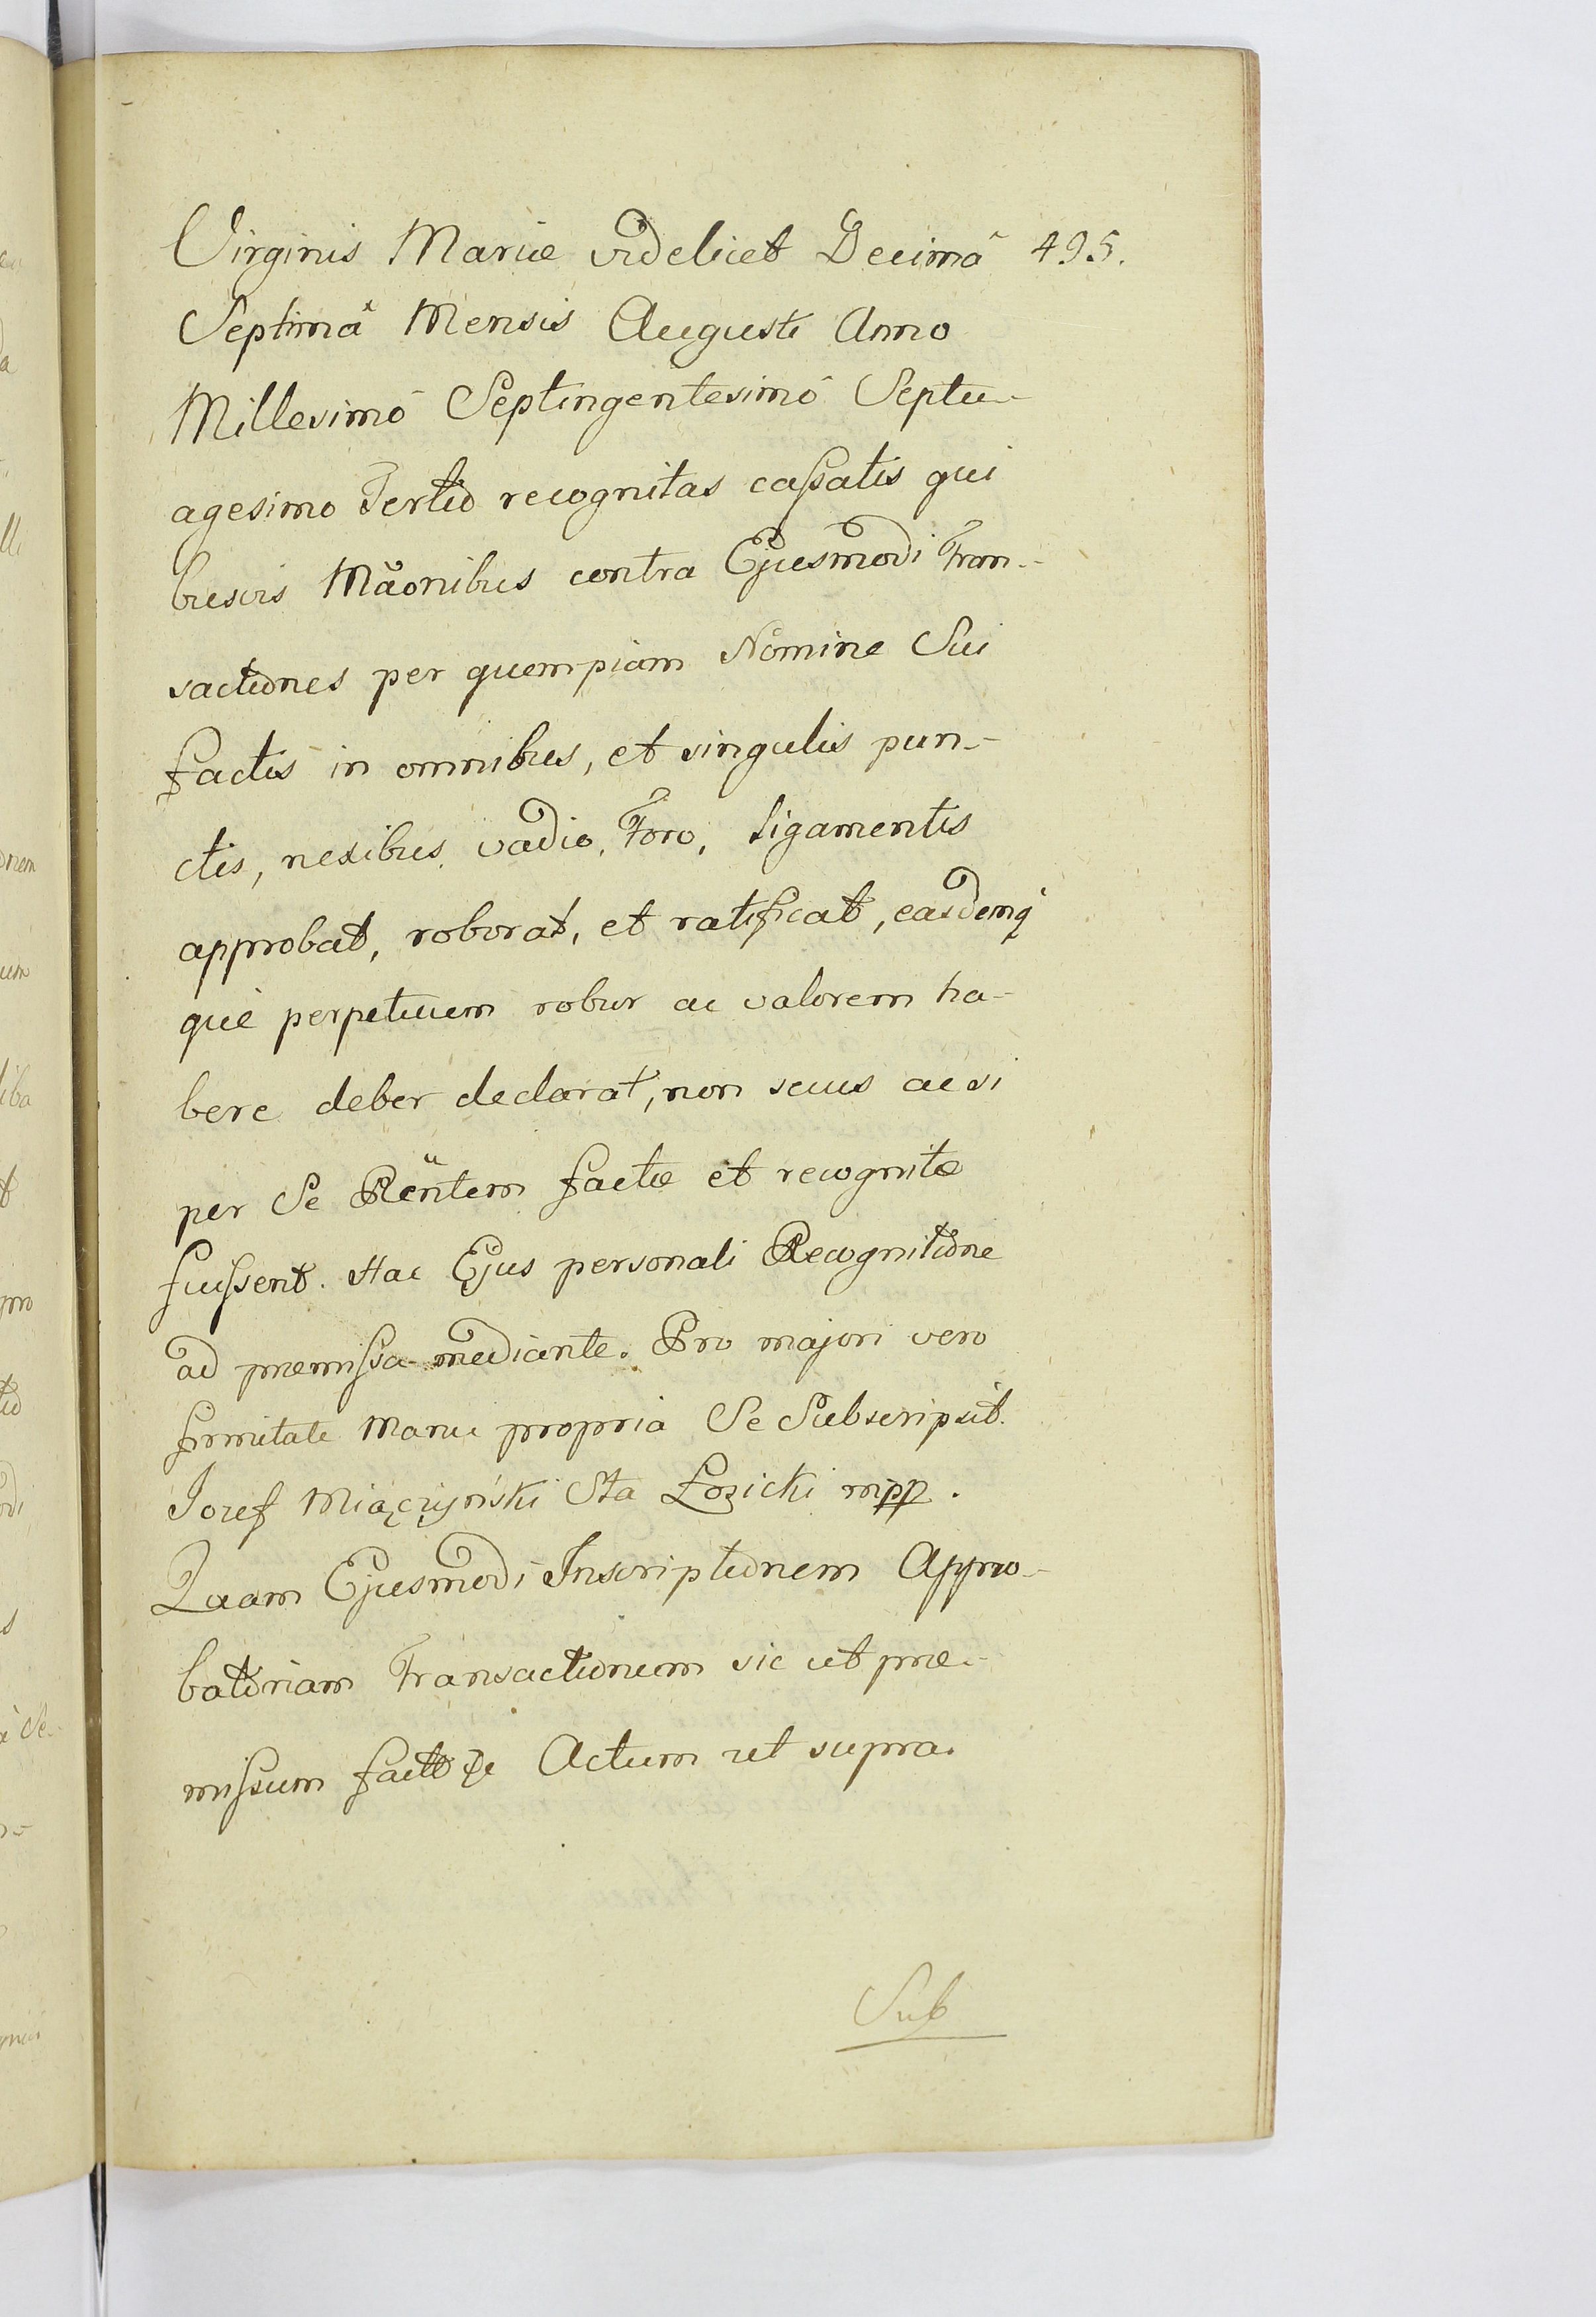 Virginis Mariæ videlicet Decimâ 495.
Septimâ Mensis Augusti Anno
Millesimô Septingentesimô Septu-
agesimo Tertio recognitas caßatis qui
busvis Mãonibus contra Ejusmodi Tran-
sactiones per quempiam Nomine Sui
factis in omnibus, et singulis pun-
ctis, nexibus, vadio, Foro, ligamentis
approbat, roborat, et ratificat, easdemq
que perpetuum robur ac valorem ha-
bere deber declarat, non secus ac si
per Se Rentem factæ et recognitæ
fuißent. Hac Ejus personali Recognitione
ad præmißa mediante. Pro majori vero
firmitate Manu propria Se Subscripsit.
Jozef Miączyński Sta Łozicki mpp.
Quam Ejusmodi Inscriptionem Appro-
batoriam Transactionum sic ut præ-
mißum Actum ut supra.
Sub